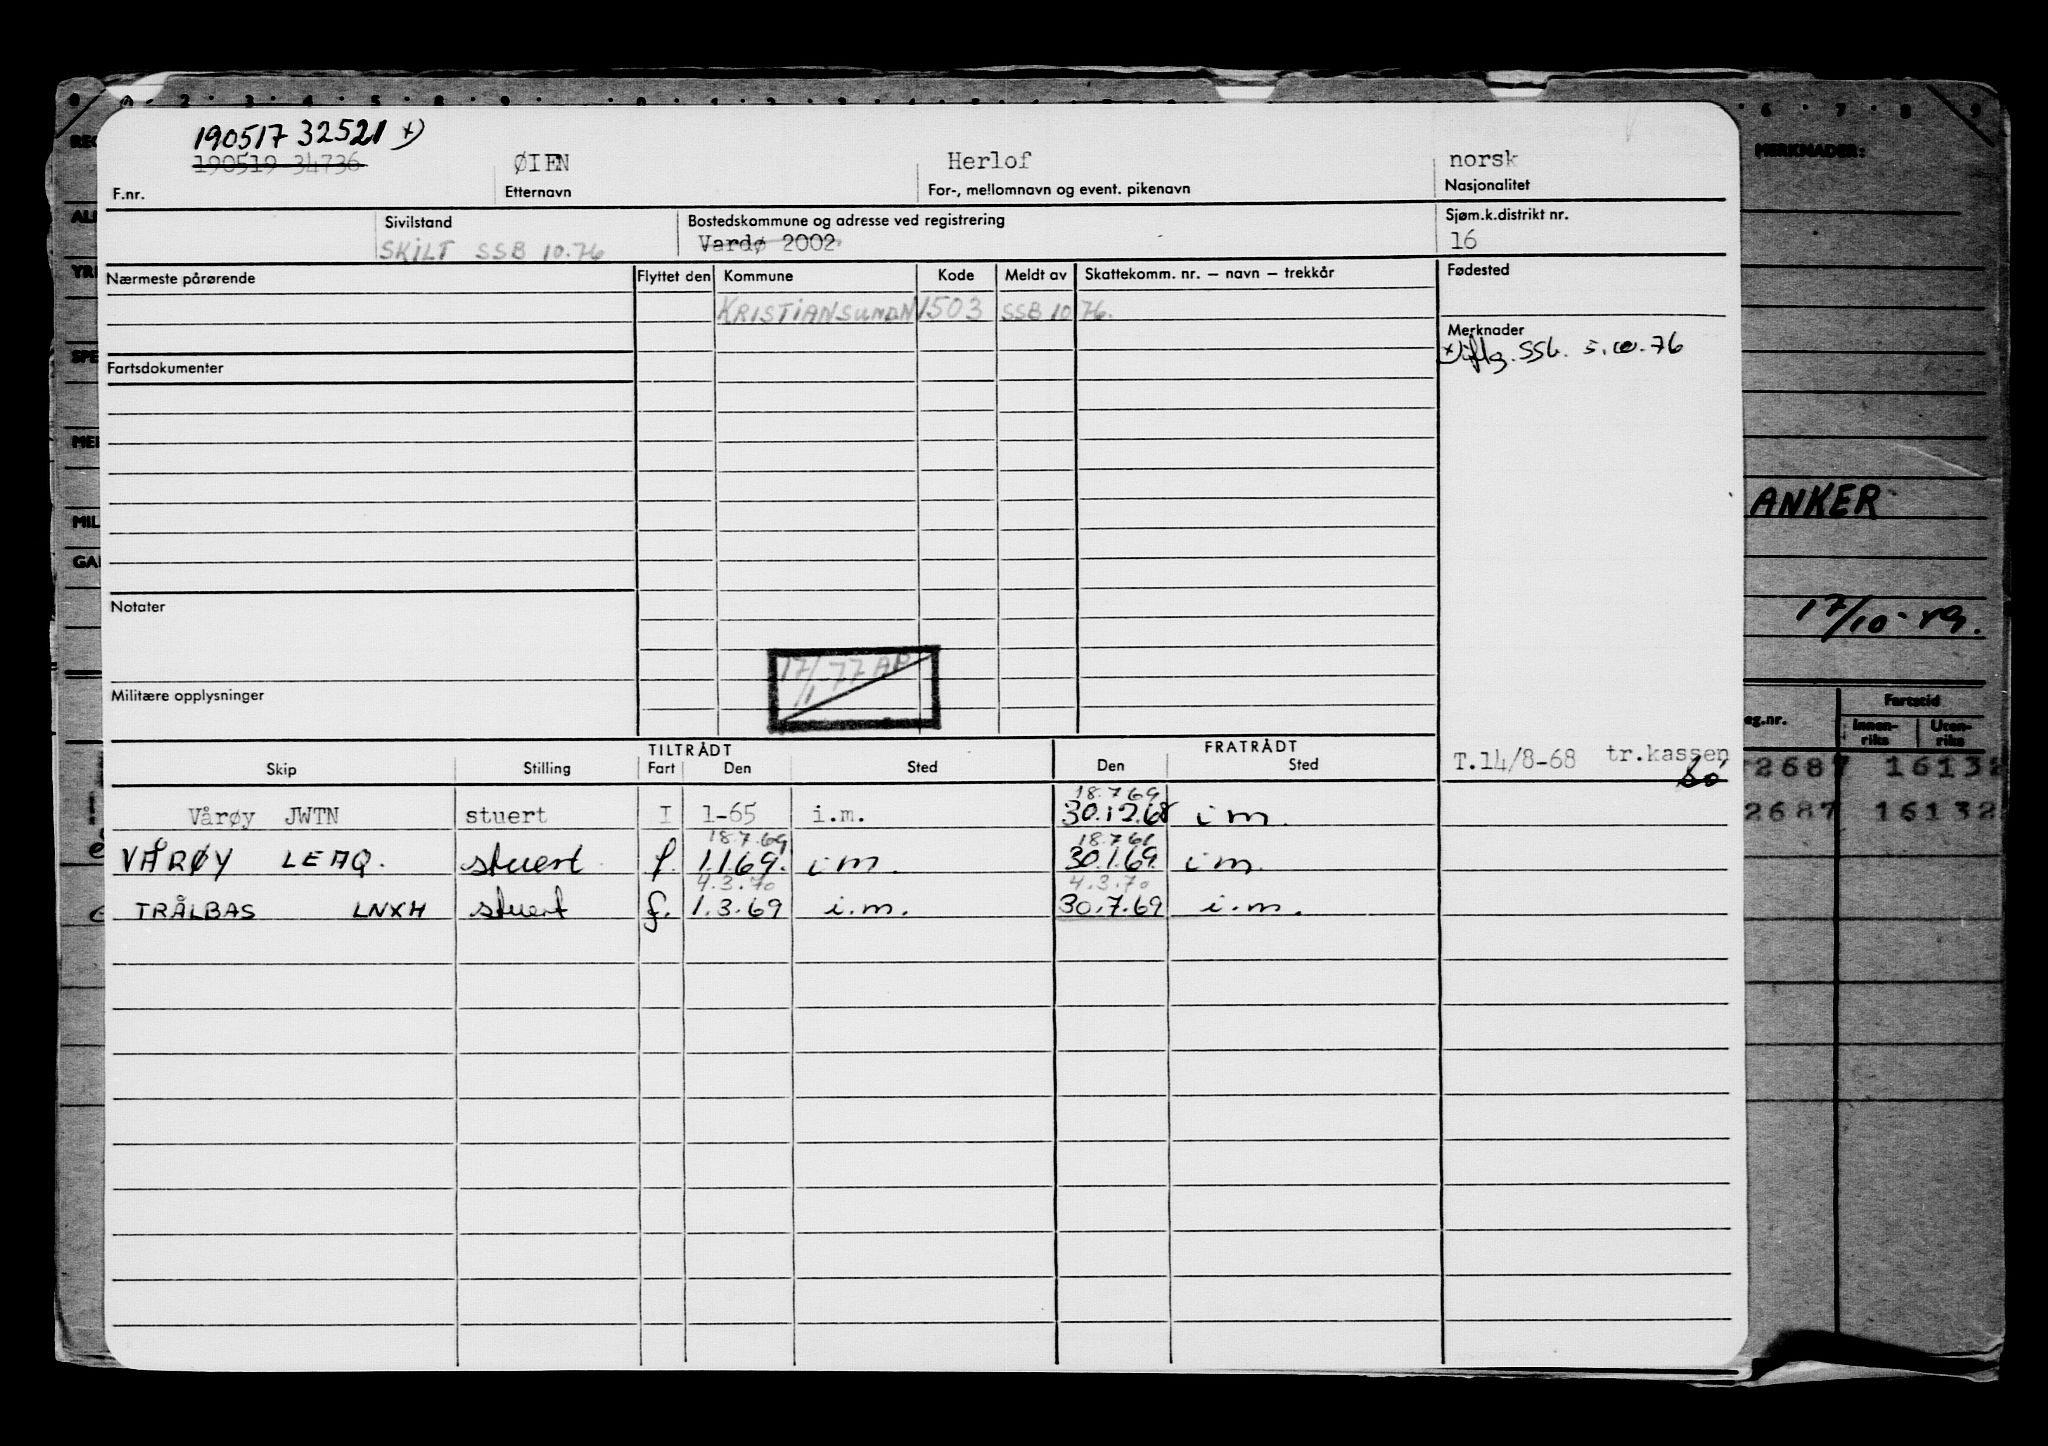 190517 32521 x)
190519 34736 ØIEN Herlof norsk
F.nr. Etternavn For-, mellomnavn og event. pikenavn Nasjonalitet
Sivilstand Bostedskommune og adresse ved registrering Sjøm.k.distrikt nr.
SKILT SSB 10.76 Vardø 2002 16
Nærmeste pårørende Flyttet den Kommune Kode Meldt av Skattekomm. nr. – navn – trekkår Fødested
KRISTIANSUND N 1503 SSB 10 76.
Merknader
x) iflg. SSb. 5.10.76
Fartsdokumenter
Notater
17/1-77 AP
Militære opplysninger
TILTRÅDT FRATRÅDT
Skip Stilling Fart Den Sted Den Sted T.14/8-68 tr.kassen
18.7.69
Vårøy JWTN stuert I 1-65 i.m. 30.12.68 i m.
18.7.69 18.7.69
VÅRØY LEAQ. stuert f. 1.1.69. i m. 30.1.69. i m.
4.3.70 4.3.70
TRÅLBAS LNXH stuert f. 1.3.69 i.m. 30.7.69 i.m.
MERKNADER:
ANKER
17/10-49.
eg.nr. Fartstid
Innen-riks Uten-riks
2687 16132
2687 16132